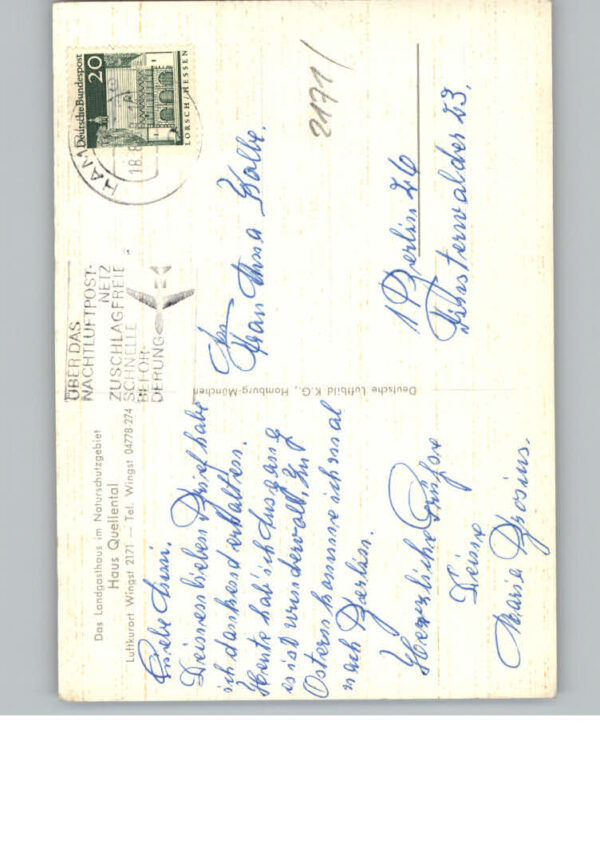 Das Landgasthaus im Naturschutzgebiet
Haus Quellental
Luftkurort Wingst 2171 — Tel. Wingst 04778-274
Liebe Anni.
Deinen lieben Brief habe
ich dankend erhalten.
Heute hab' ich Ausgang
es ist wundervoll. Zu
Ostern komme ich mal
nach Berlin.
Herzliche Grüße
Deine
Marie
Deutsche Luftbild K.G., Hamburg-München
ÜBER DAS
NACHTLUFTPOST-
NETZ
ZUSCHLAGFREIE
SCHNELLE
BEFÖR-
DERUNG
HAM
18.8
Deutsche Bundespost
20
LORSCH/HESSEN
2171/
Frau Anna Kolbe.
1 Berlin 26
Finsterwalder 23.